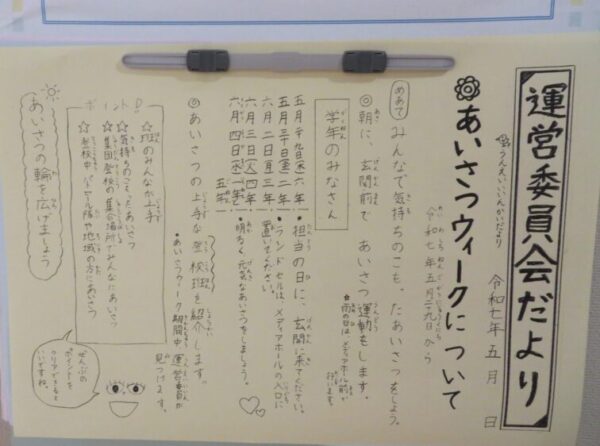 運営委員会だより
うんえいいいんかいだより
令和七年五月　日
あいさつウィークについて
令和七年五月二九日から
めあて
みんなで気持ちのこもったあいさつをしよう。
◎朝に、玄関前で　あいさつ運動をします。
★雨の日は、メディアホール前で行います。
学年のみなさん
五月二十九日(木)六年
五月三十日(金)二年
六月二日(月)三年
六月三日(火)四年
六月四日(水)一年・五年
・担当の日に、玄関に来てください。
・ランドセルは、メディアホールの入口に
置いてください。
・明るく元気なあいさつをしましょう。
◎あいさつの上手な登校班を紹介します。
・あいさつウィーク期間中、運営委員が
見つけます。
ポイント!
☆班のみんなが上手
☆気持ちのこもったあいさつ
☆集団登校の集合場所でみんなにあいさつ
☆登校中、パトロール隊や地域の方にあいさつ
あいさつの輪を広げましょう
ぜんぶの
ポイントを
クリアできると
いいですね。